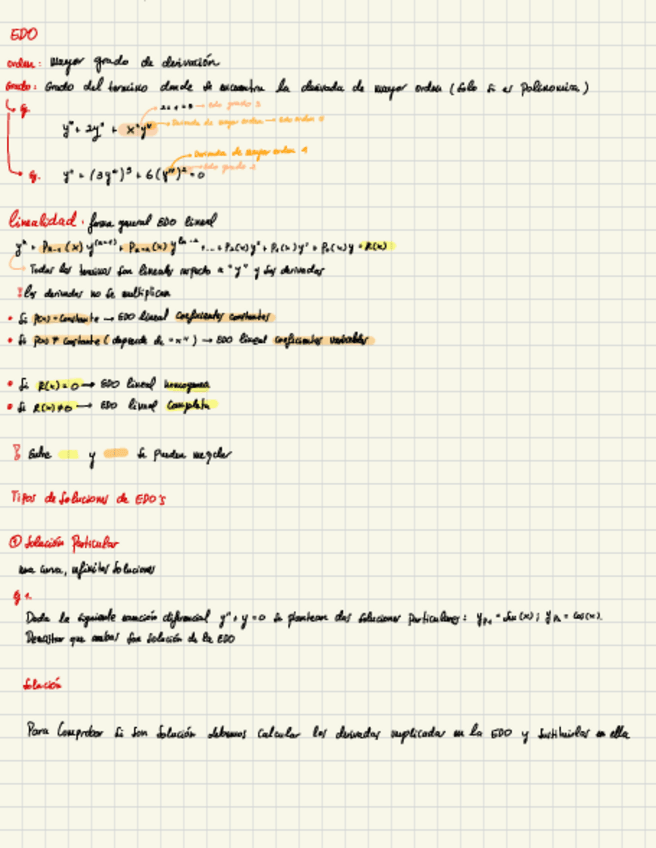 EDO
orden: Mayor grado de derivación
Grado: Grado del termino donde se encuentra la derivada de mayor orden (Solo si es Polinomica)
linealidad. forma general EDO lineal
Todos los terminos son lineales respecto a "y" y sus derivadas
las derivadas no se multiplican
• Si P(x) = Constante → EDO lineal Coeficientes constantes
• Si P(x) ≠ Constante (depende de "x") → EDO lineal coeficientes variables
• Si R(x) = 0 → EDO lineal homogenea
• Si R(x) ≠ 0 → EDO lineal Completa
Entre y se pueden mezclar
Tipos de Soluciones de EDO's
① Solución Particular
una curva, infinitas Soluciones
Dada la siguiente ecuación diferencial y'' + y = 0 se plantean dos soluciones particulares: yp₁ = Sen(x); yp₂ = Cos(x).
Demostrar que ambas son solución de la EDO
Solución
Para Comprobar si son Solución debemos Calcular las derivadas implicadas en la EDO y Sustituirlas en ella